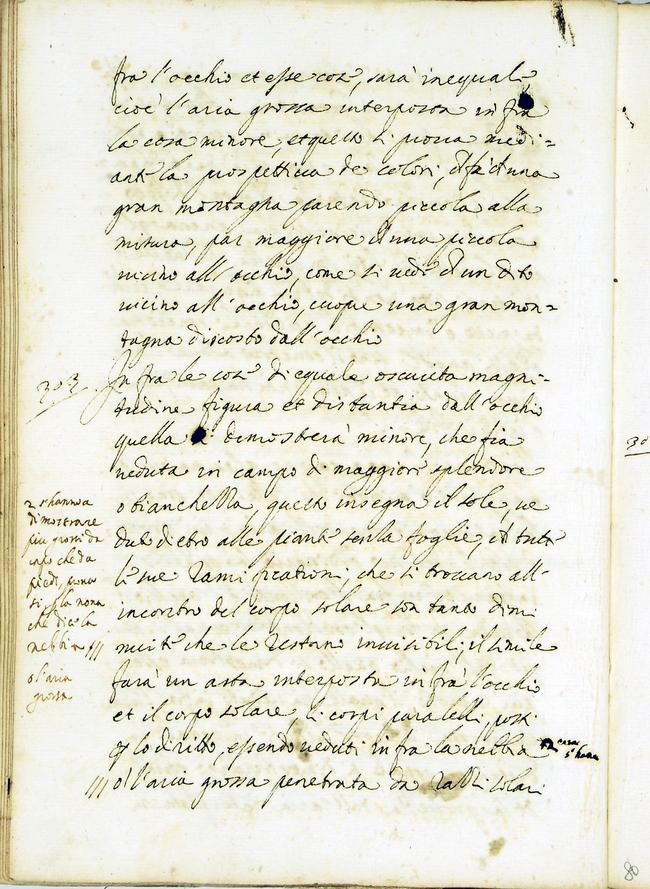 fra l'occhio et esse cose, sarà inequale
cioè l'aria grossa interposta in fra
la cosa minore, et questo si prova medi=
ante la prospettiva de colori, che fa ch una
gran montagna parendo piccola alla
misura, par maggiore ch una piccola
vicino all'occhio, come si vede ch un dito
vicino all'occhio, cuopre una gran mon=
tagna discosto dall'occhio
303 In fra le cose di equale oscurita magni=
tudine figura et distantia dall'occhio
quella si dimostrerà minore, che fia
veduta in campo di maggiore splendore
o bianchezza, questo insegna il sole, ve
duto dietro alle piante senza foglie, ch tutte
le sue ramificationi, che si troccano all'
incontro del corpo solare son tanto dimi
nuite che le restano invisibili; il simile
farà un asta interposta in fra l'occhio
et il corpo solare, li corpi paralelli, posti
p lo diritto, essendo veduti in fra la nebbia
/// o l'aria grossa penetrata da razzi solari
s'hanno a
dimostrare
piu grossi da
capo che da
piedi,
la nona
che dice la
nebbia ///
o l'aria
grossa
casa
s'hano
30
80